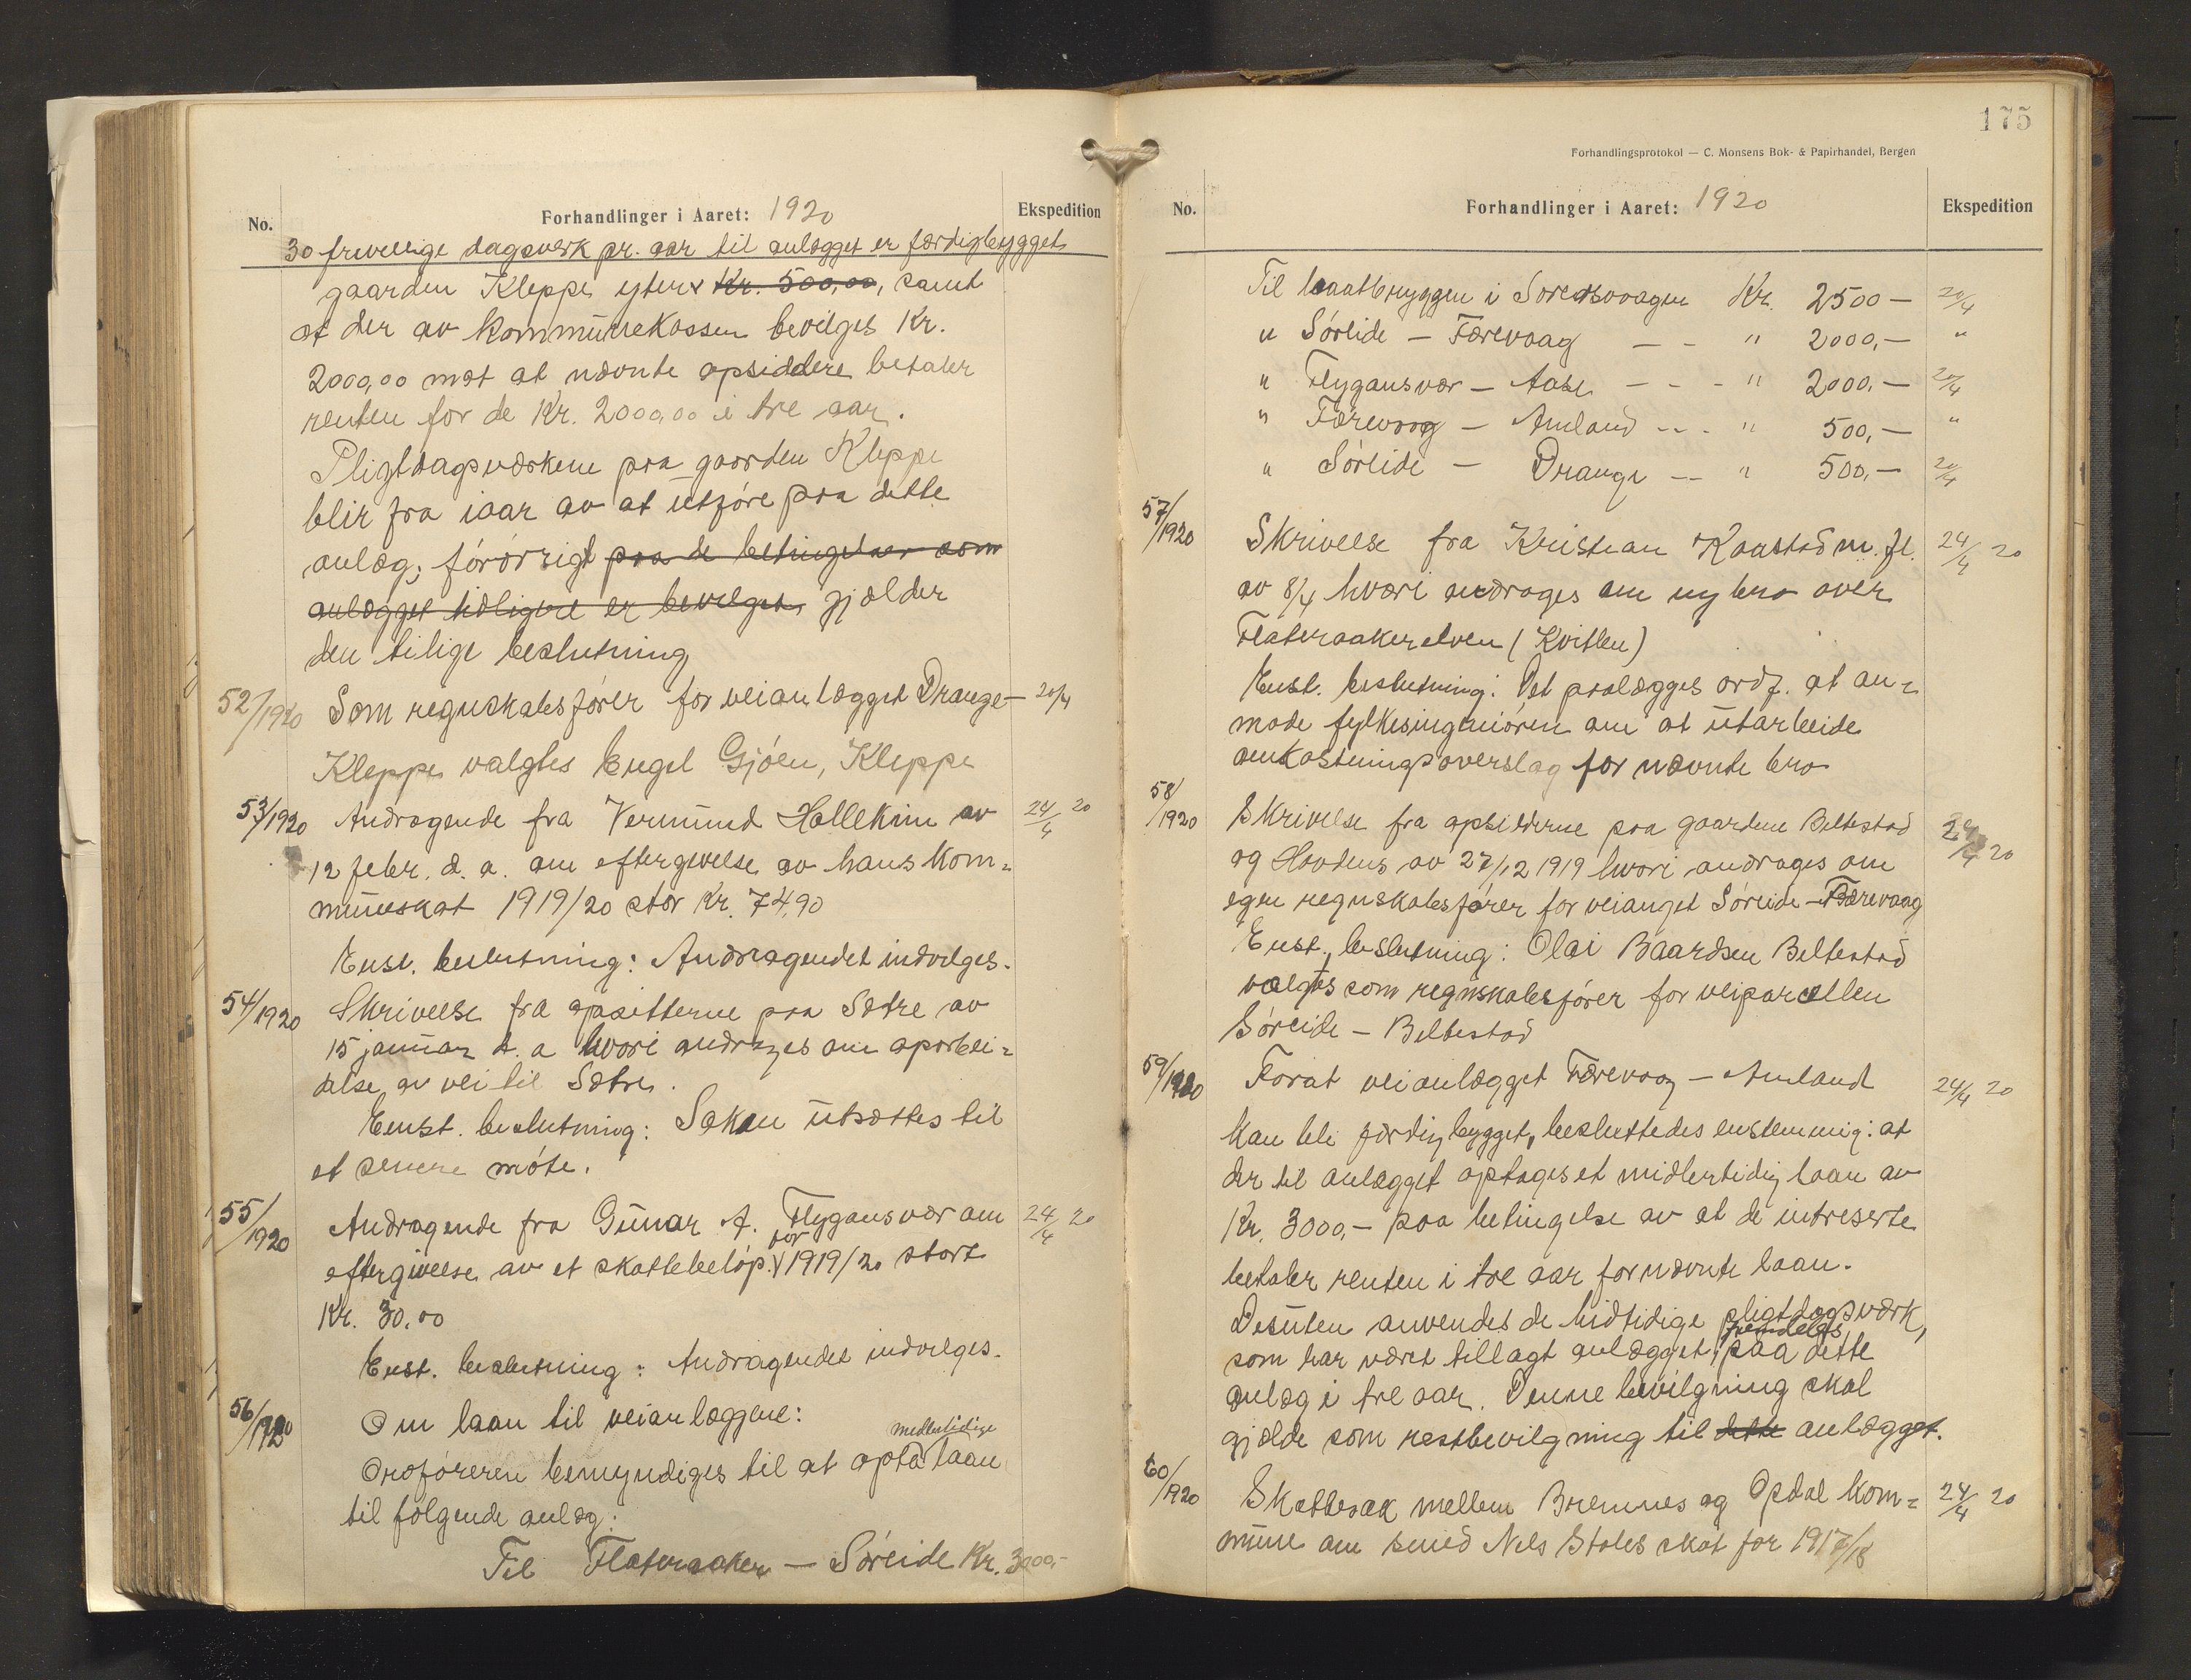 No.
Forhandlinger i Aaret: 1920
Ekspedition
30 frivillige dagsverk pr. aar til anlægget er færdigbygget
gaarden Kleppe yter Kr. 500,00, samt
at der av kommunekassen bevilges Kr.
2000,00 mot at nævnte opsiddere betaler
renten for de Kr. 2000,00 i tre aar.
Pligtdagsværkene paa gaarden Kleppe
blir fra iaar av at utføre paa dette
anlæg; forøvrigt paa de betingelser som
anlægget tidligere er bevilget, gjælder
den tilige beslutning
52/1920 Som regnskabsfører for veianlægget Drange- 20/4
Kleppe valgtes Engel Gjøen, Kleppe
53/1920 Andragende fra Vermund Hallekim av 24/4 20
12 febr. d. a. om eftergivelse av hans kom=
muneskat 1919/20 stor Kr. 74,90
Enst. beslutning: Andragendet indvilges.
54/1920 Skrivelse fra opsitterne paa Sætre av
15 januar d. a hvori andrages om oparbei=
delse av vei til Sætre.
Enst. beslutning: Saken utsættes til
et senere møte.
55/1920 Andragende fra Gunar A. Flygansvær om 24/4 20
for
eftergivelse av et skattebeløp 1919/20 stort
Kr. 30.00
Enst. beslutning: Andragendet indvilges.
56/1920 Om laan til veianlæggene:
midlertidige
Ordføreren bemyndiges til at opta laan
til følgende anlæg:
Til Flatraaker — Søreide Kr. 3000,-
175
Forhandlingsprotokol — C. Monsens Bok- & Papirhandel, Bergen
No.
Forhandlinger i Aaret: 1920
Ekspedition
Til baatbryggen i Kr. 2500 — 20/4
" Søreide — Færevaag — - " 2000,— "
" Flygansvær — Aase — - - " 2000,— 20/4
" Færevaag — Amland -- - " 500,— "
" Søreide — Drange -- " 500,— 20/4
57/1920 Skrivelse fra Kristian Kaastad m. fl. 24/4 20
av 8/4 hvori andrages om ny bro over
Flateraakerelven (Kvitlen)
Enst. beslutning: Det paalægges ordf. at an=
mode fylkesingeniøren om at utarbeide
omkostningsoverslag for nævnte bro
58/1920 Skrivelse fra opsidderne paa gaardene Beltestad 24/4 20
og Hovdens av 27/12 1919 hvori andrages om
egen regnskabsfører for veianget Søreide — Færevaag
Enst. beslutning: Olai Baardsen Beltestad
valgtes som regnskabsfører for veiparcellen
Søreide — Beltestad
59/1920 Forat veianlægget Færevaag — Amland 24/4 20
kan bli færdig bygget, besluttedes enstemmig: at
der til anlægget optages et midlertidig laan av
Kr. 3000,- paa betingelse av at de intreserte
betaler renten i tre aar for nævnte laan.
Desuten anvendes de hidtidige pligtdagsværk,
fremdeles
som har været tillagt anlægget, paa dette
anlæg i tre aar. Denne bevilgning skal
gjælde som restbevilgning til dette anlægget.
60/1920 Skattesak mellem Bremnes og Opdal kom= 24/4 20
mune om smed Nils Stoles skat for 1917/18